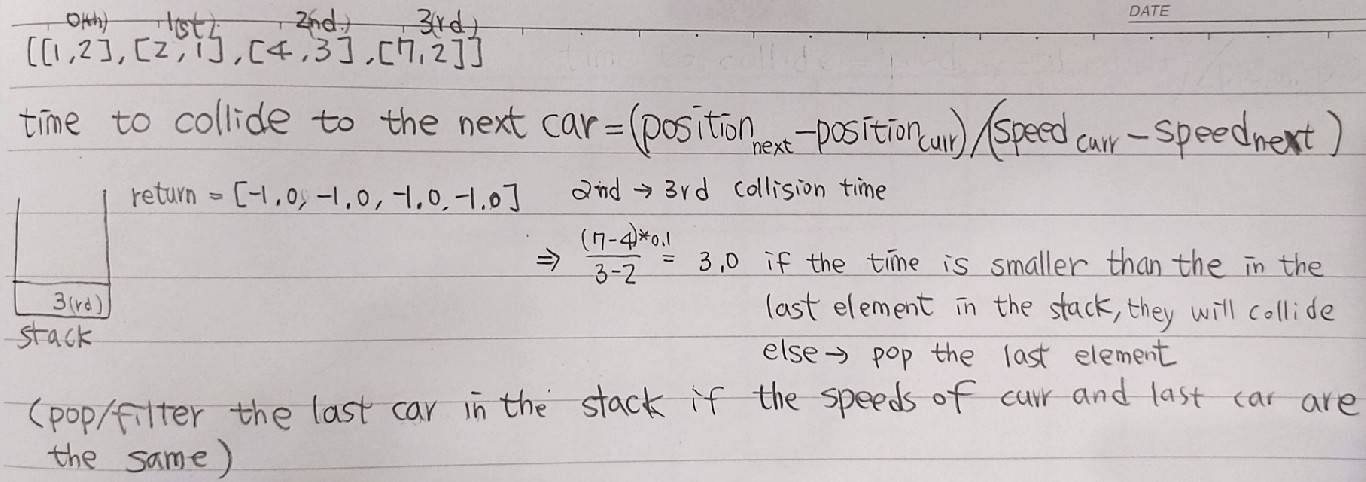 DATE
0(th) 1(st) 2(nd) 3(rd)
[[1,2], [2,1], [4,3], [7,2]]
time to collide to the next car = (position next - position curr) / (speed curr - speed next)
return = [-1.0, -1.0, -1.0, -1.0] 2nd → 3rd collision time
⇒ (7-4)*0.1 / 3-2 = 3.0 if the time is smaller than the in the
3(rd) last element in the stack, they will collide
stack
else → pop the last element
(pop/filter the last car in the stack if the speeds of curr and last car are
the same)